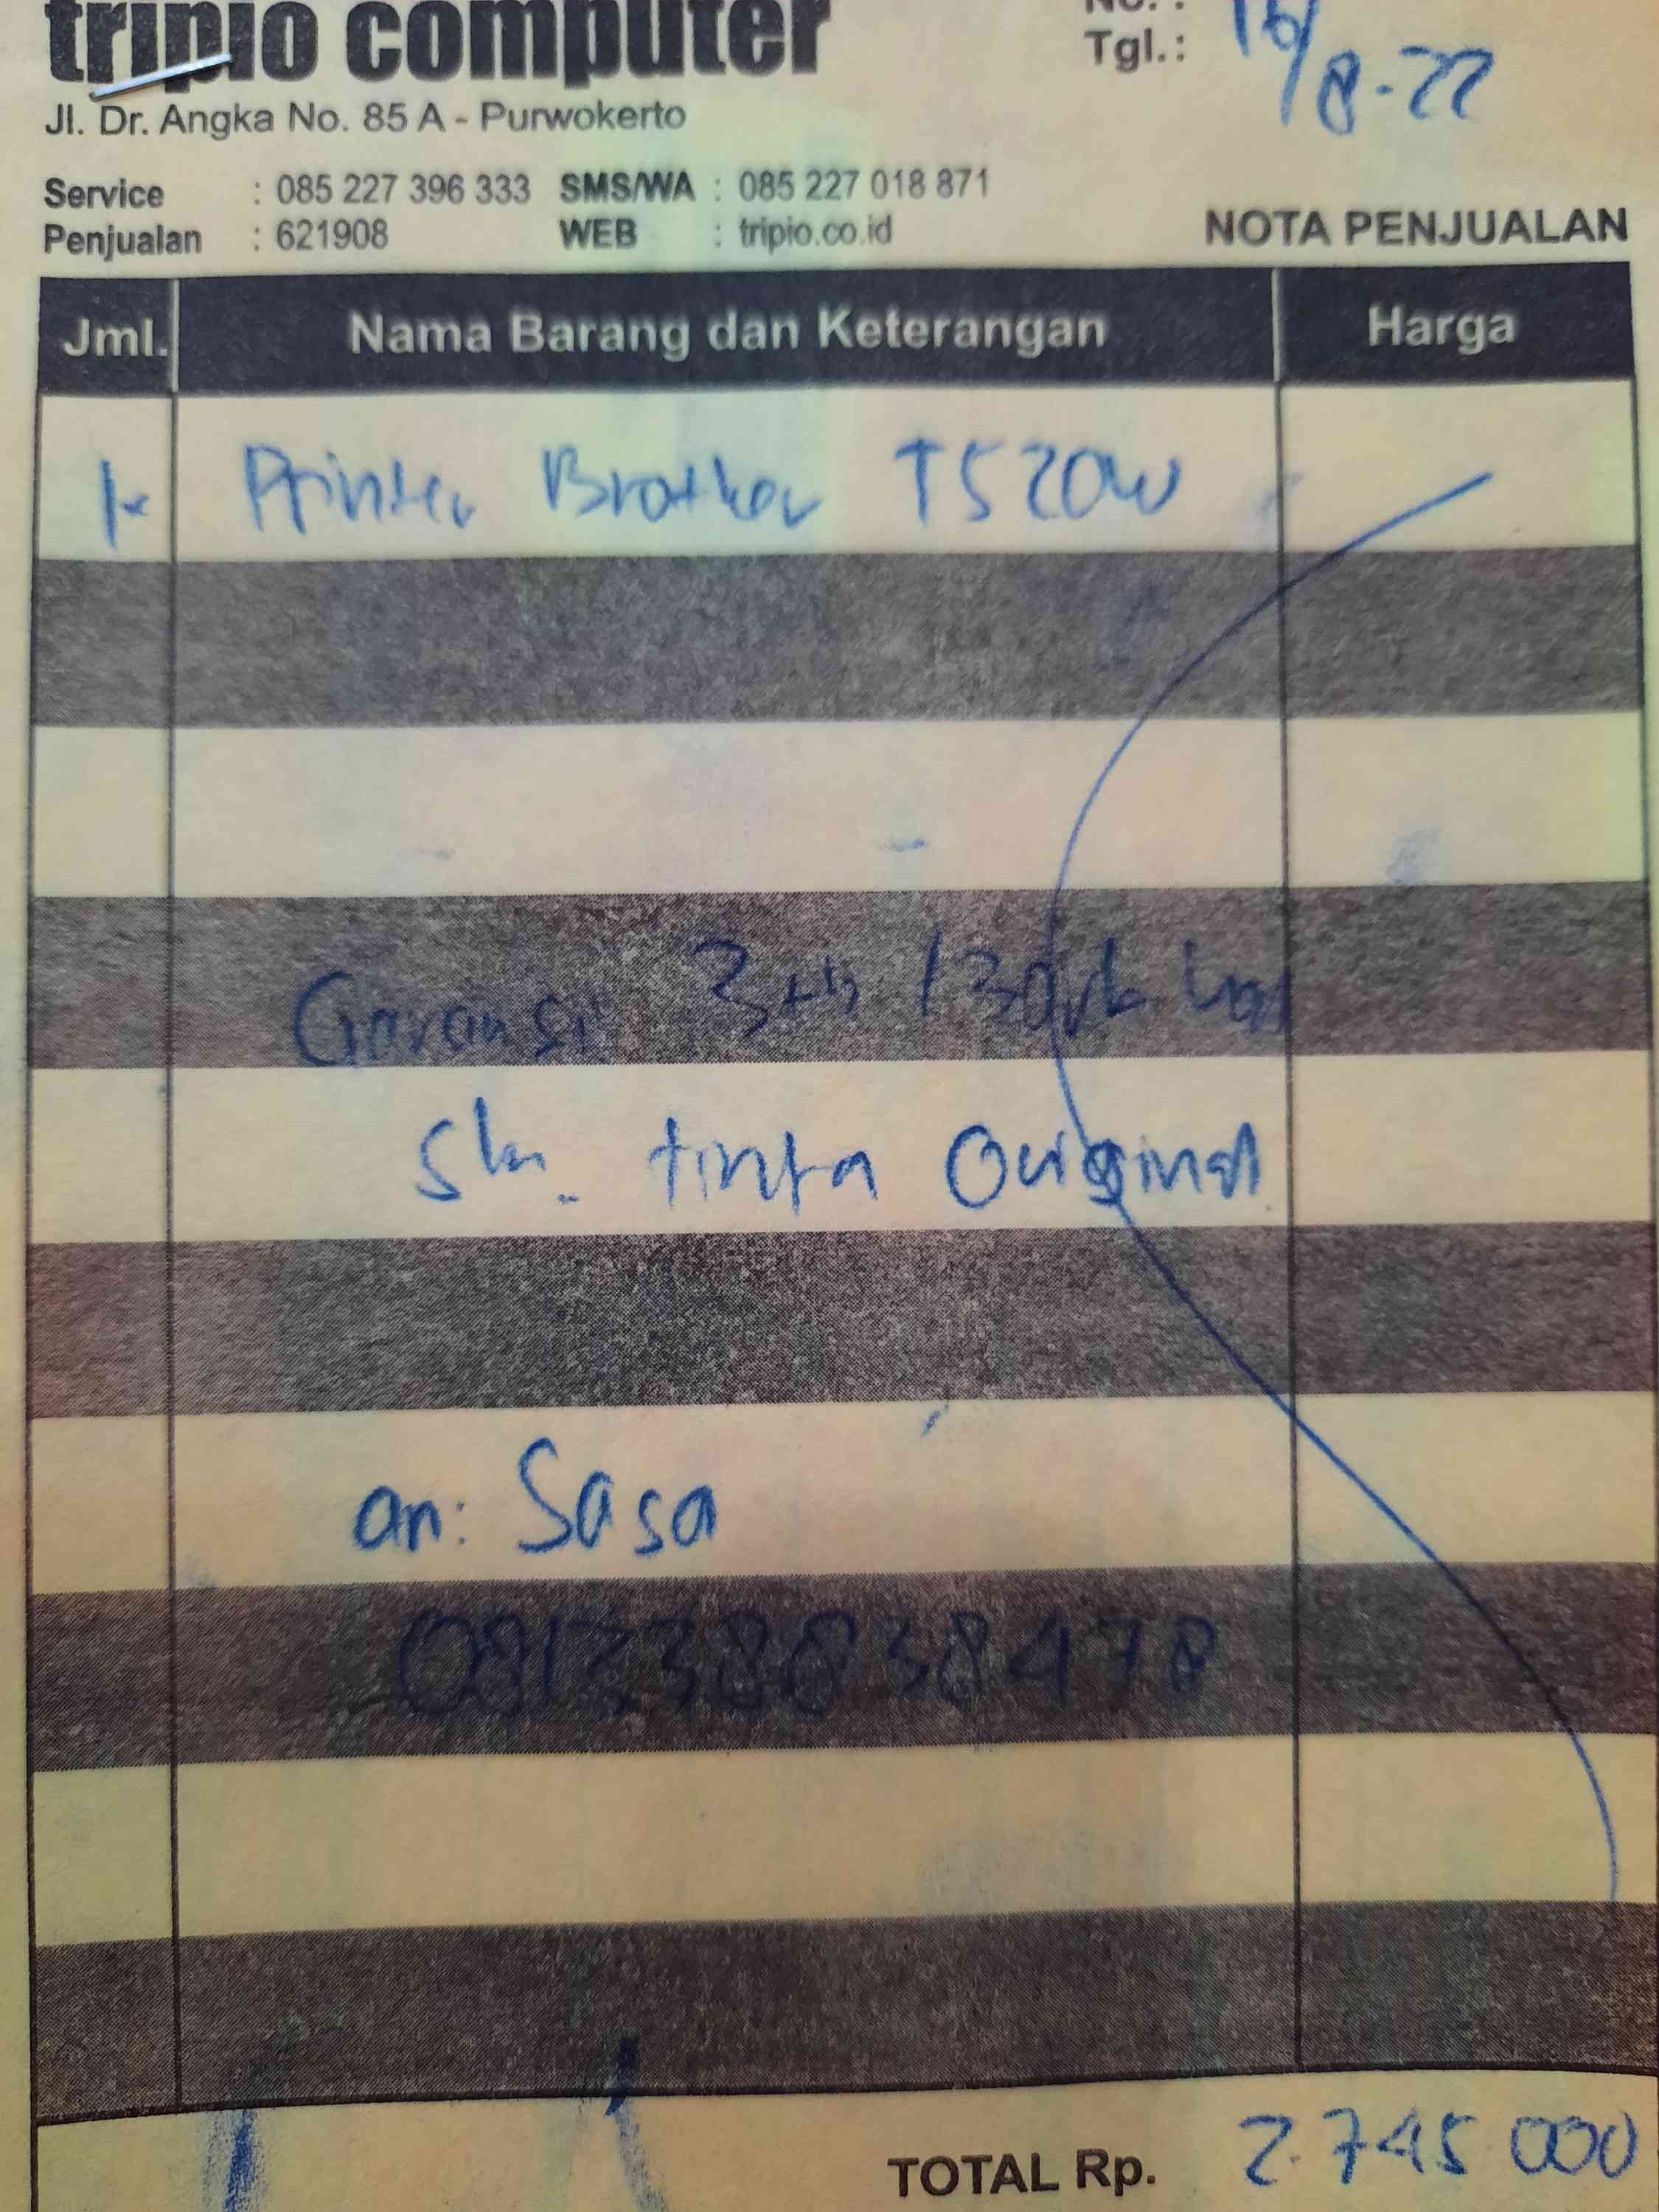 tripio computer
No. :
Tgl.: 16/8-22
Jl. Dr. Angka No. 85 A - Purwokerto
Service : 085 227 396 333 SMS/WA : 085 227 018 871
Penjualan : 621908 WEB : tripio.co.id
NOTA PENJUALAN
Jml. Nama Barang dan Keterangan Harga
1 Printer Brother T520W
Garansi 3th / 30rb
tinta Original
an: Sasa
TOTAL Rp. 2.745 000